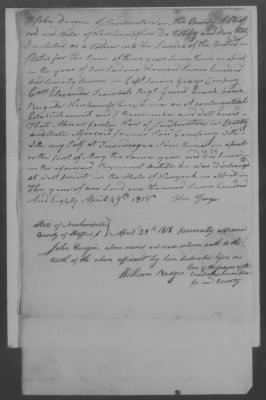 I John Durgin of Sanbornton in the County of Strafford
and State of Newhampshire Do testify and say that
I inlisted as a soldier into the Service of the United
States for the term of three years some time in april
in the year of our Lord one thousand seven hundred
and seventy seven in Capt James Grays Company
Col Alexander Scammels Regt Genl Poors
Brigade Newhampshire Line on a Continental
Establishment and I Remember and well know
That Abner fowler Now of Sanbornton in County
and State Joined said Company
the very Self at Ticonderoga some time in april
or the first of May the same year and did
in the aforesaid Regiment untill he was Discharged
at west point in the State of Newyork in april in
The year of our Lord one thousand seven hundred
And Eighty April 29th 1818 John Durgin
State of Newhampshire
County of Strafford April 29th 1818 personally appeared
John Durgin whose name and made solemn oath to the
truth of the above affidavit by him subscribed before me
William Badger One of the Judges of the
Court of
for said County